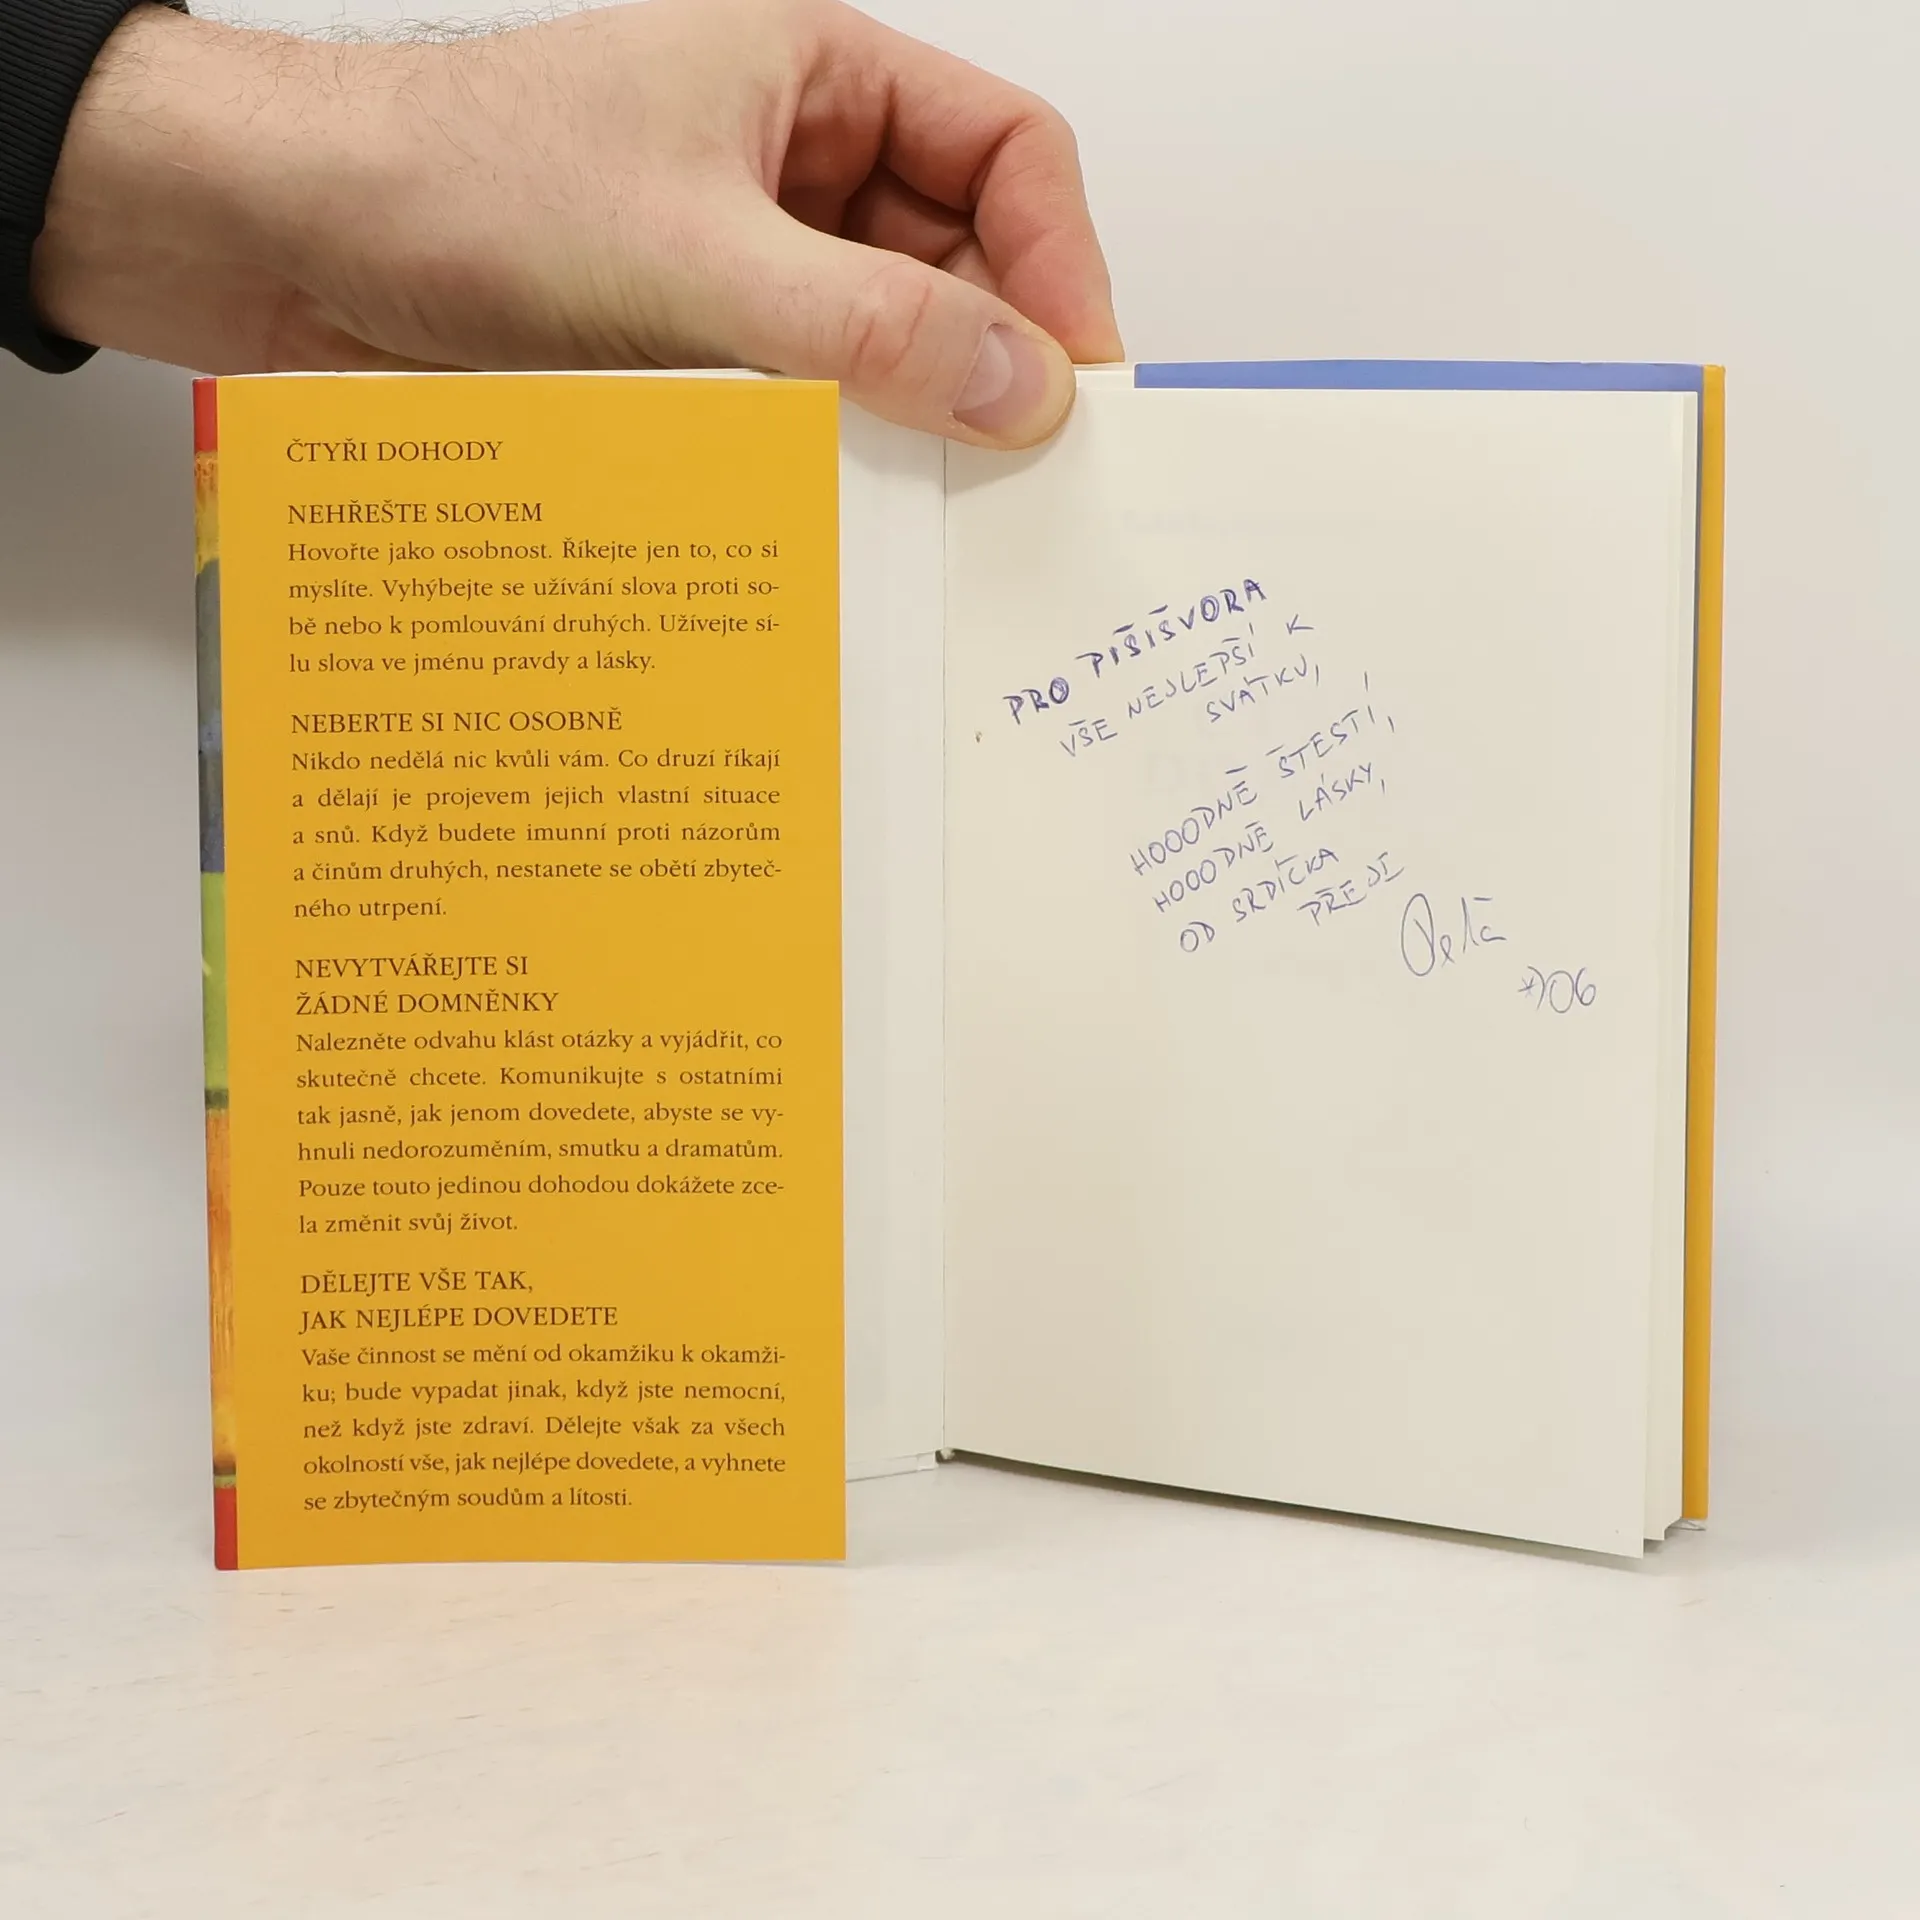 ČTYŘI DOHODY
NEHŘEŠTE SLOVEM
Hovořte jako osobnost. Říkejte jen to, co si
myslíte. Vyhýbejte se užívání slova proti so-
bě nebo k pomlouvání druhých. Užívejte sí-
lu slova ve jménu pravdy a lásky.
NEBERTE SI NIC OSOBNĚ
Nikdo nedělá nic kvůli vám. Co druzí říkají
a dělají je projevem jejich vlastní situace
a snů. Když budete imunní proti názorům
a činům druhých, nestanete se obětí zbyteč-
ného utrpení.
NEVYTVÁŘEJTE SI
ŽÁDNÉ DOMNĚNKY
Nalezněte odvahu klást otázky a vyjádřit, co
skutečně chcete. Komunikujte s ostatními
tak jasně, jak jenom dovedete, abyste se vy-
hnuli nedorozuměním, smutku a dramatům.
Pouze touto jedinou dohodou dokážete zce-
la změnit svůj život.
DĚLEJTE VŠE TAK,
JAK NEJLÉPE DOVEDETE
Vaše činnost se mění od okamžiku k okamži-
ku; bude vypadat jinak, když jste nemocní,
než když jste zdraví. Dělejte však za všech
okolností vše, jak nejlépe dovedete, a vyhnete
se zbytečným soudům a lítosti.
PRO PIŠIŠVORA
VŠE NEJLEPŠÍ K
SVÁTKU,
HOOODNĚ ŠTĚSTÍ,
HOOODNĚ LÁSKY,
OD SRDÍČKA
PŘEJE
06